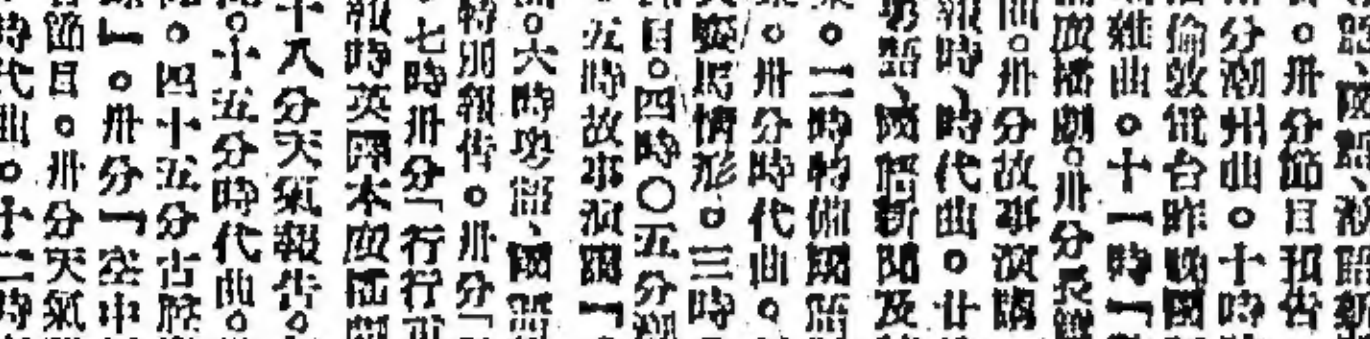 語、國語、潮語新
。卅分節目預告
分潮州曲。十時
倫敦電台昨晚國
雜曲。十一時「
廣播劇。卅分長
。卅分故事演講
報時、時代曲。廿
粵語、國語新聞及
。二時特備國語
。卅分時代曲。
賽馬情形。三時
目。四時〇五分潮
五時故事演講「
。六時粵語、國語
特別報告。卅分「
七時卅分「行行
報時英國本廣播
十八分天氣報告。
。十五分時代曲。
。四十五分古
」。卅分「空中
節目。卅分天氣
時代曲。十二時